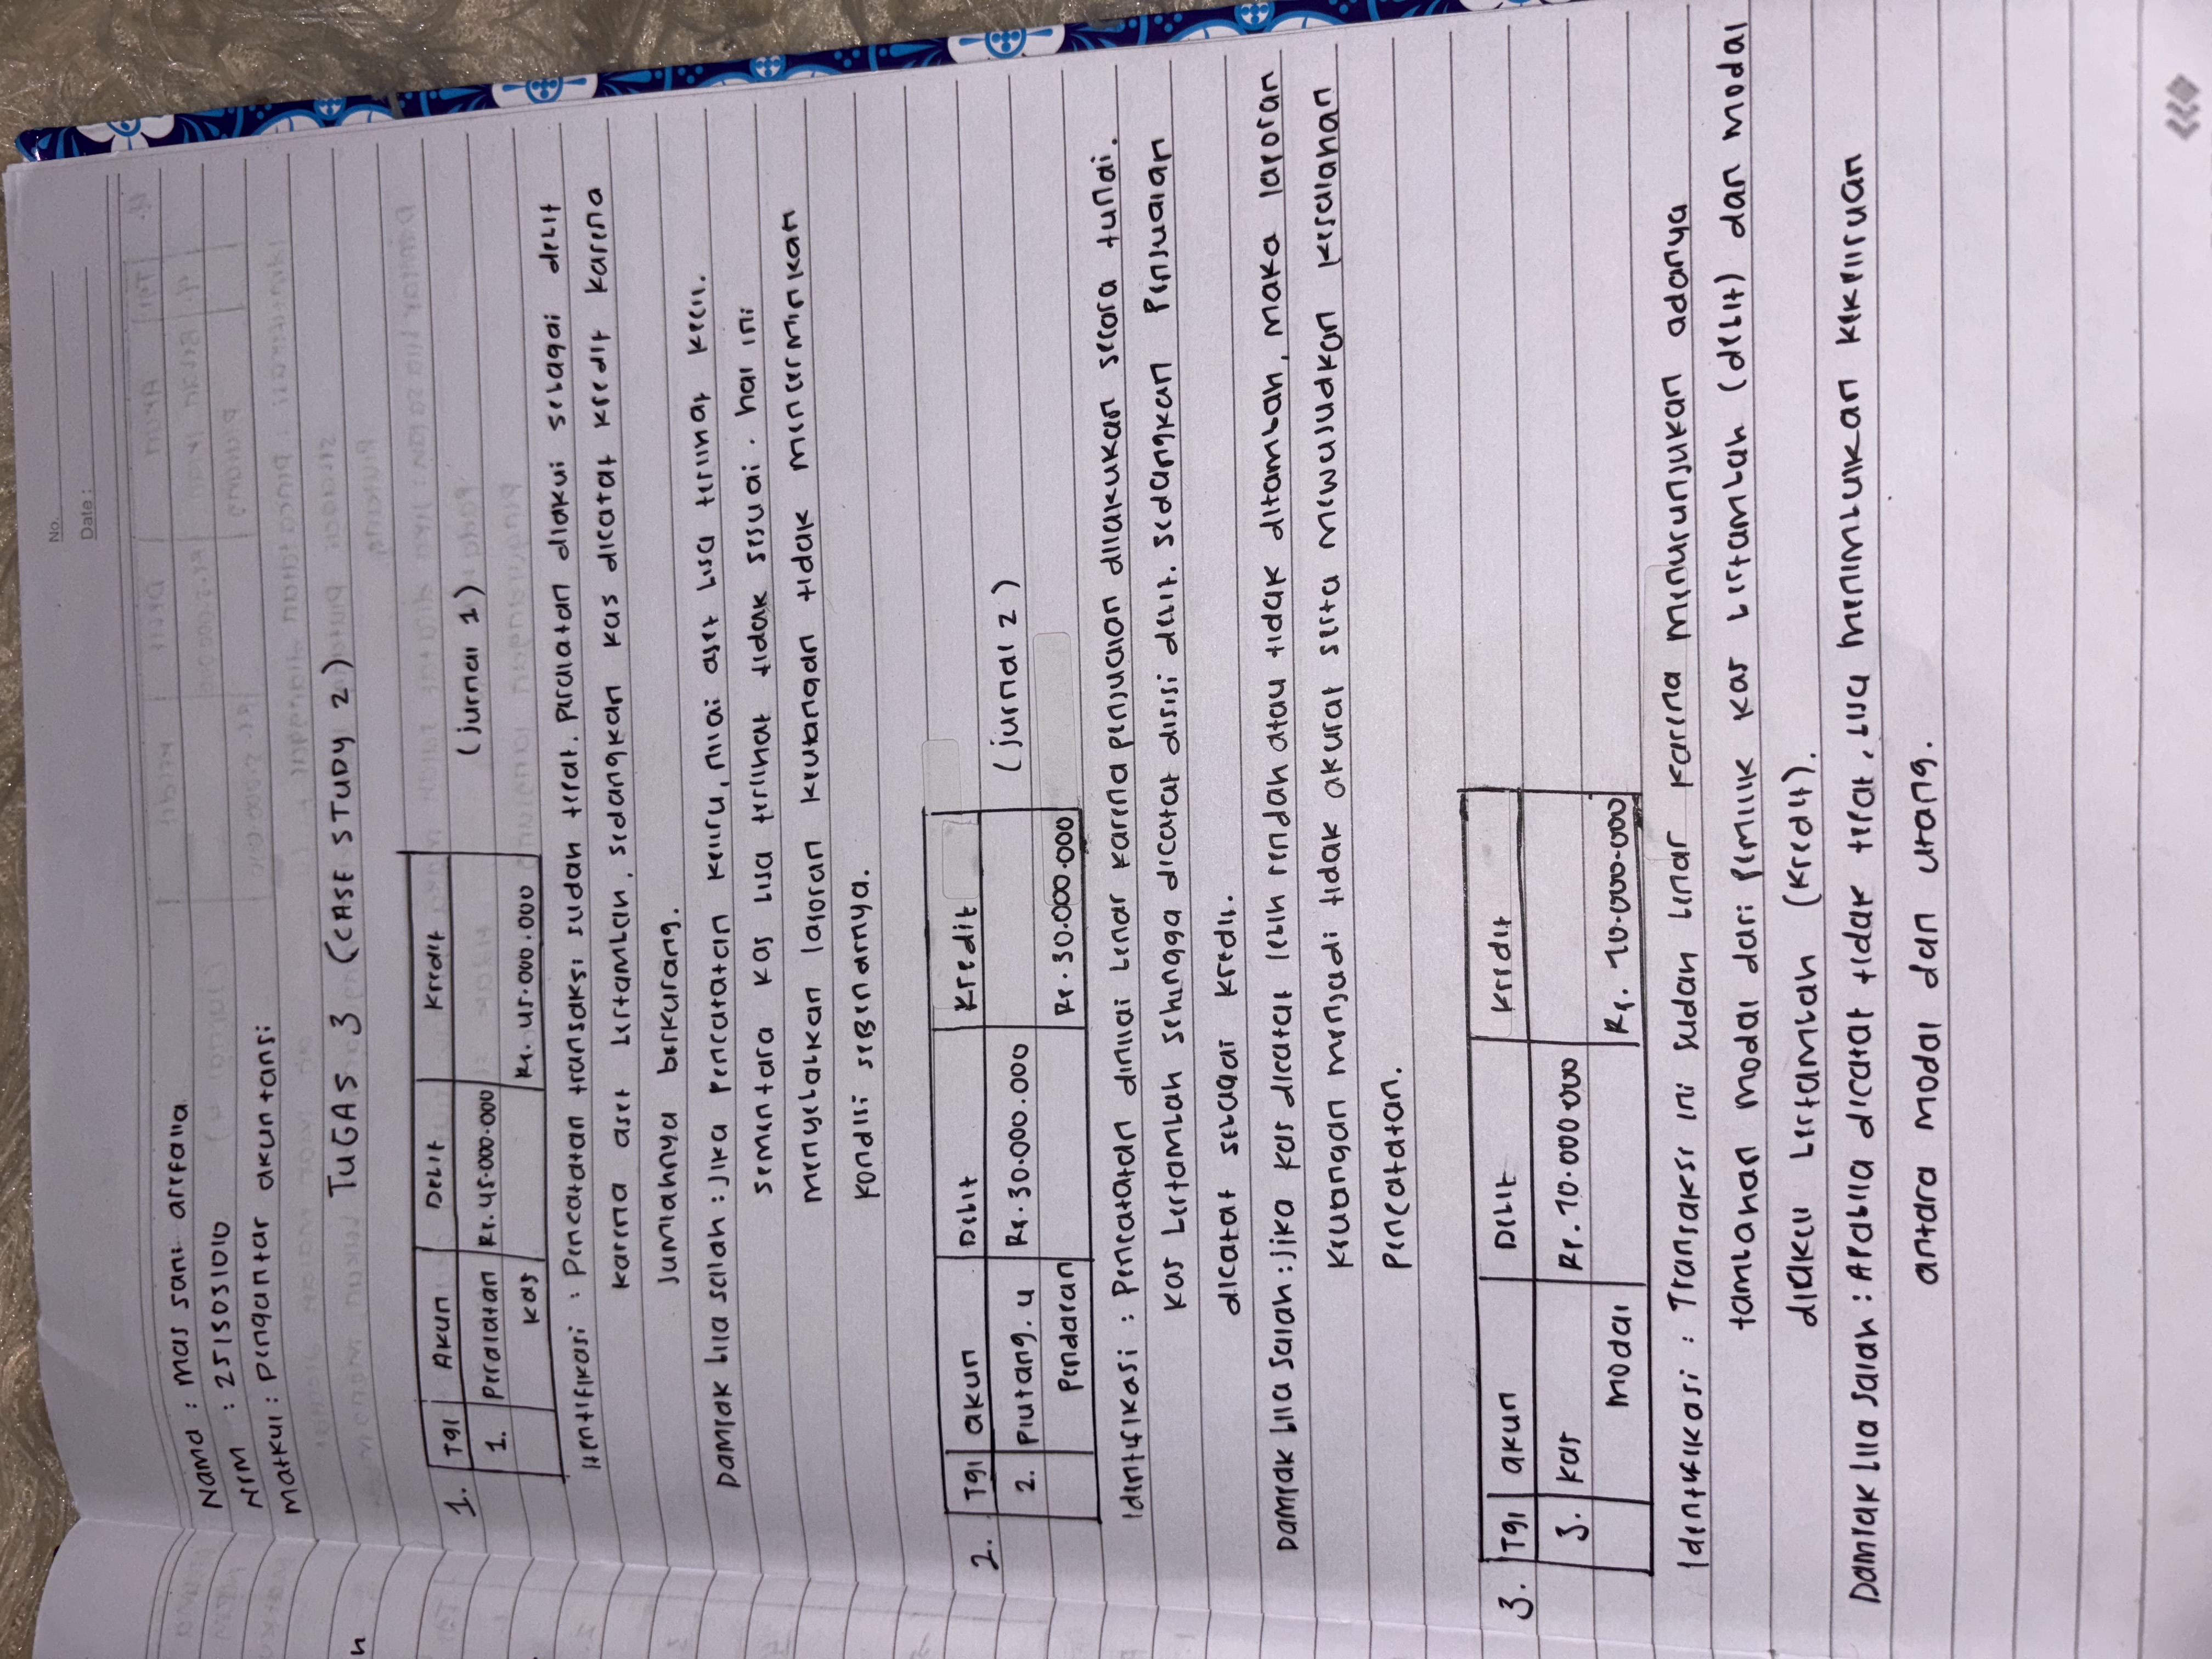 No.
Date :
Nama : mas sani arrfalla
NPM : 2515031010
Matkul : Pengantar akuntansi
TUGAS 3 (CASE STUDY 2)
1. Tgl Akun Debit Kredit
1. Peralatan Rp. 45.000.000 (jurnal 1)
Kas Rp. 45.000.000
Identifikasi : Pencatatan transaksi sudah tepat. Peralatan diakui sebagai debit
karena aset bertambah, sedangkan kas dicatat kredit karena
jumlahnya berkurang.
Dampak bila salah : Jika pencatatan keliru, nilai aset bisa terlihat kecil.
sementara kas bisa terlihat tidak sesuai. hal ini
menyebabkan laporan keuangan tidak mencerminkan
kondisi sebenarnya.
2. Tgl akun Debit Kredit
2. Piutang. u Rp. 30.000.000 (jurnal 2)
Pendaran Rp. 30.000.000
Identifikasi : Pencatatan dinilai benar karena penjualan dilakukan secara tunai.
kas bertambah sehingga dicatat disisi debit. sedangkan Penjualan
dicatat sebagai kredit.
Dampak bila salah : Jika kas dicatat lebih rendah atau tidak ditambah, maka laporan
keuangan menjadi tidak akurat serta mewujudkan kesalahan
pencatatan.
3. Tgl akun Debit Kredit
3. Kas Rp. 70.000.000
Modal Rp. 70.000.000
Identifikasi : Transaksi ini sudah benar karena menurunjukan adanya
tambahan modal dari pemilik kas bertambah (debit) dan modal
diakui bertambah (kredit).
Dampak bila salah : Apabila dicatat tidak tepat, bisa menimbulkan kekeliruan
antara modal dan utang.